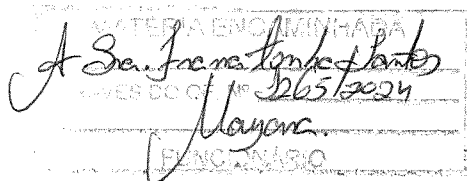 MATÉRIA ENCAMINHADA
A Sra. Franca Santos
ATRAVÉS DO OF. Nº 1265/2024
Mayara.
FUNCIONÁRIO